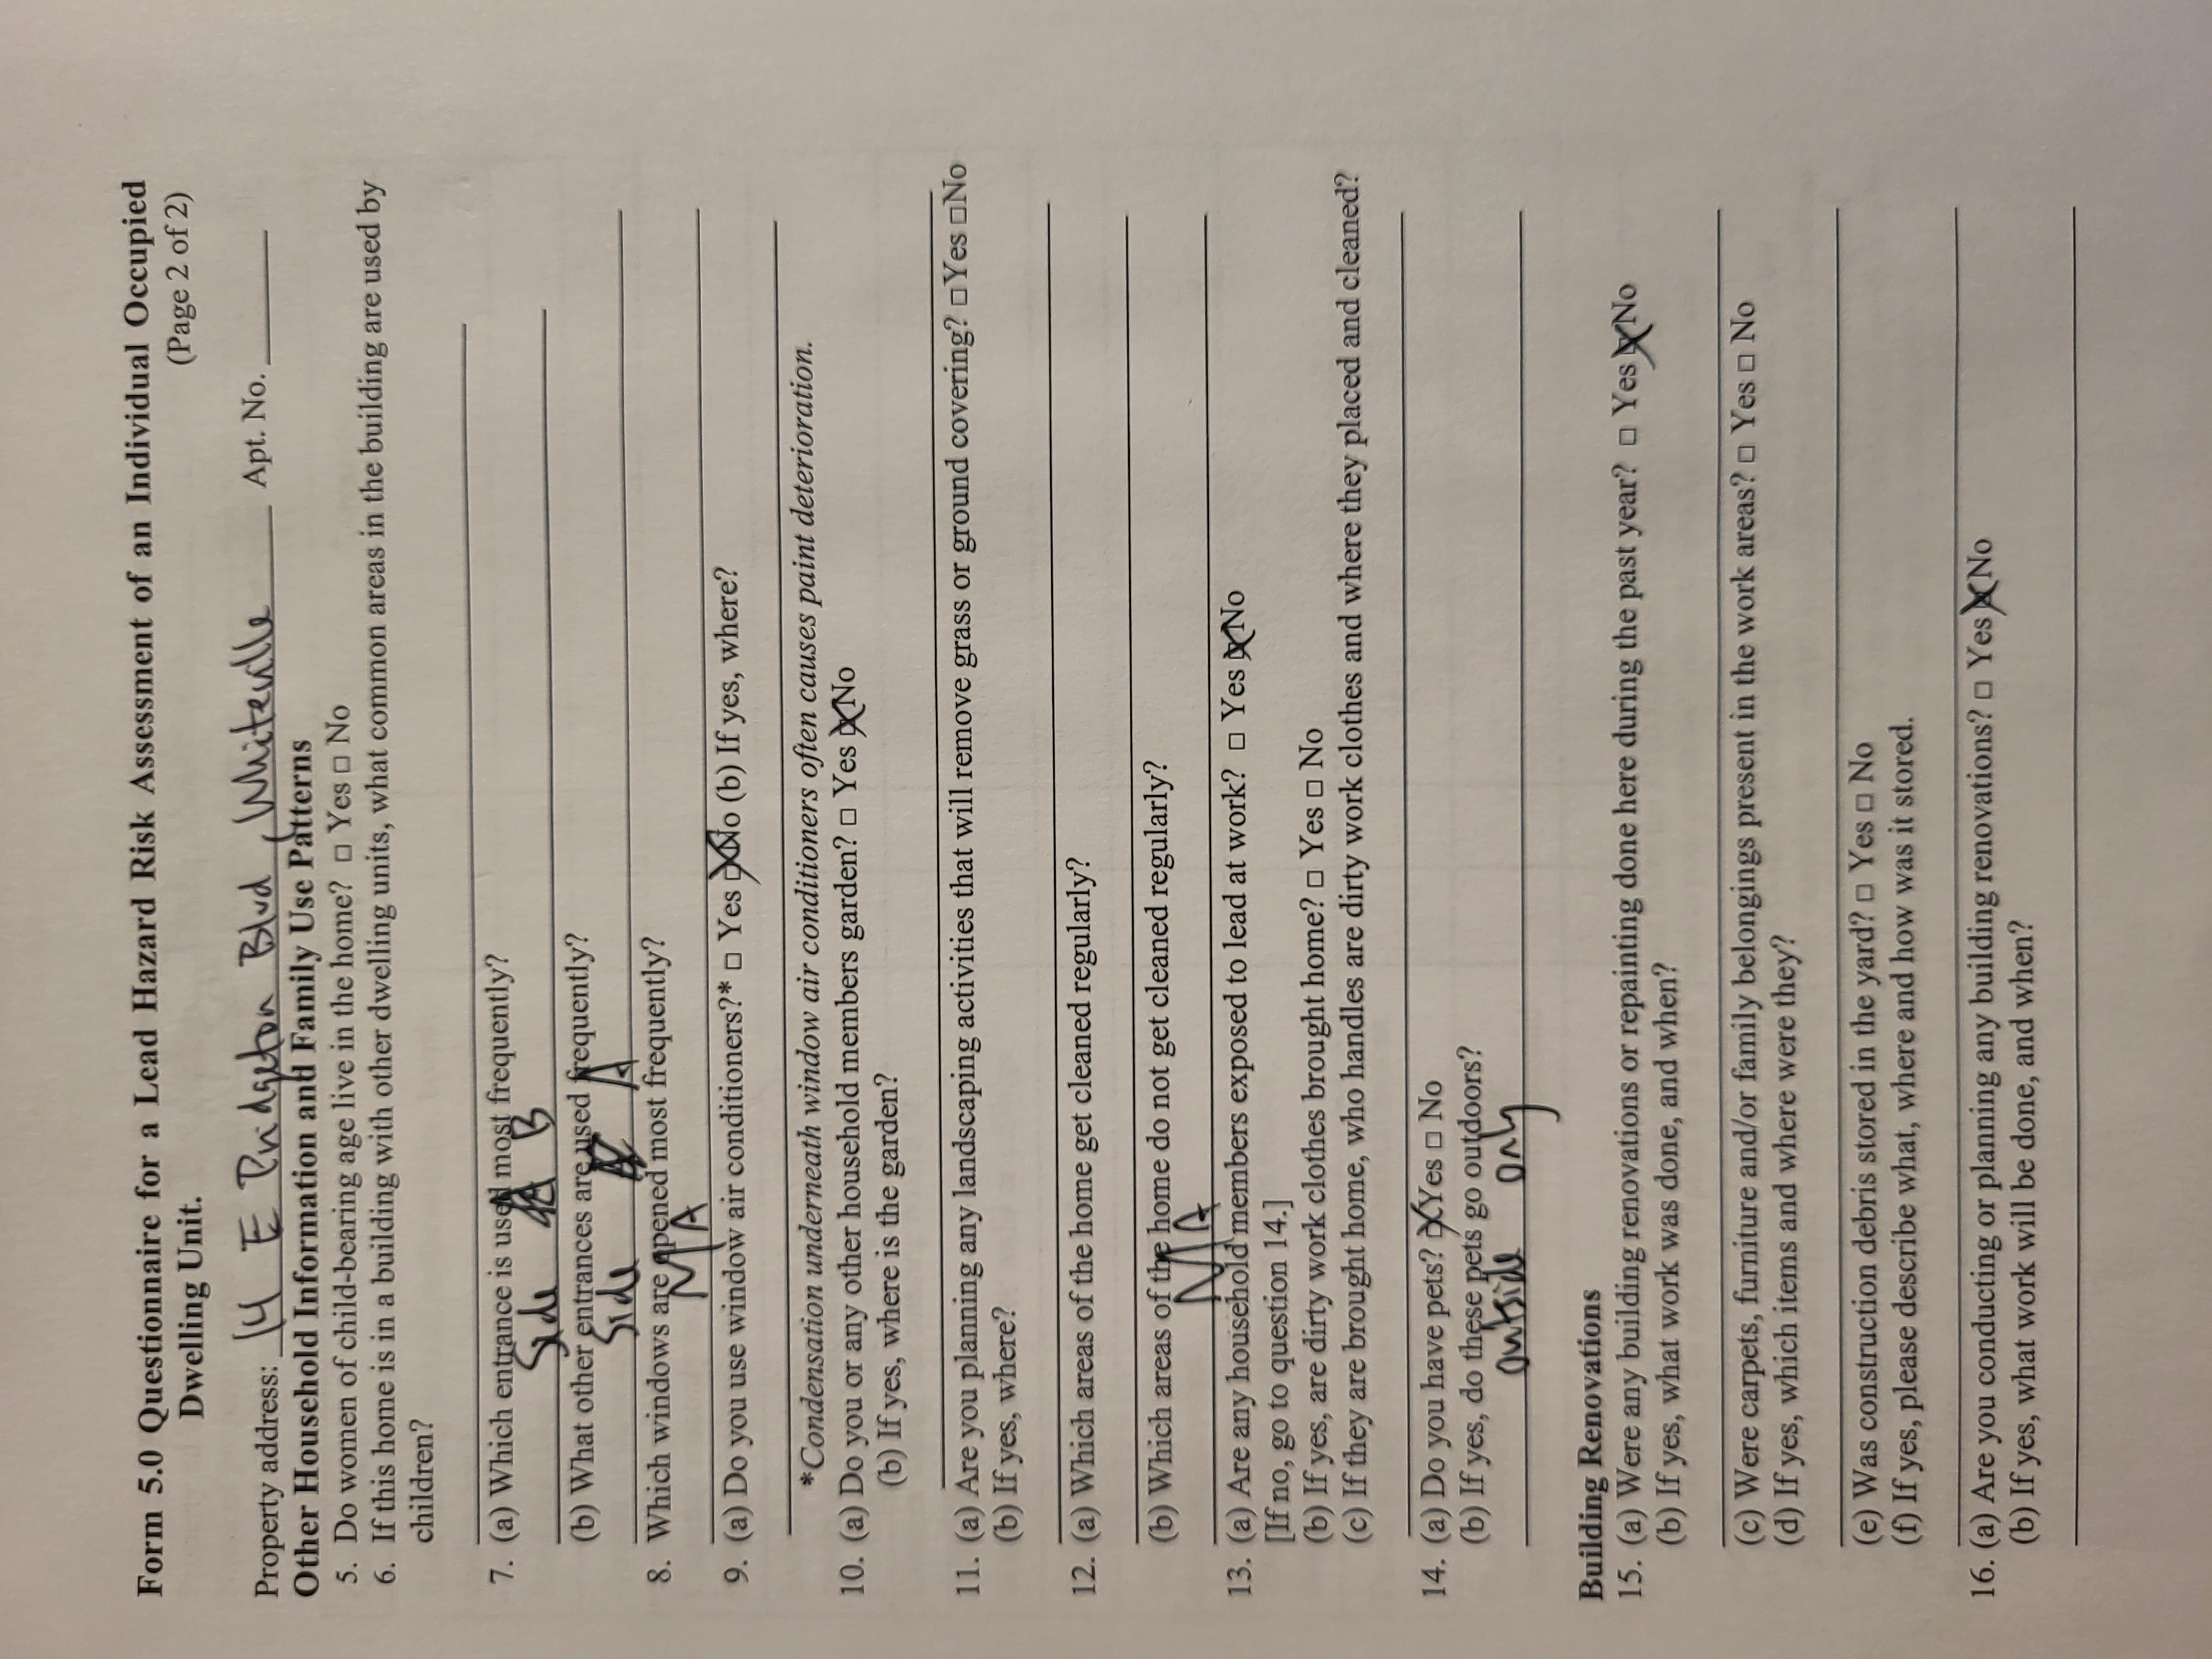 Form 5.0 Questionnaire for a Lead Hazard Risk Assessment of an Individual Occupied
Dwelling Unit.
(Page 2 of 2)
Property address: 14 E Pridgeton Blvd, Whiteville Apt. No.
Other Household Information and Family Use Patterns
5. Do women of child-bearing age live in the home? □ Yes □ No
6. If this home is in a building with other dwelling units, what common areas in the building are used by
children?
7. (a) Which entrance is used most frequently?
Side B
(b) What other entrances are used frequently?
Side A
8. Which windows are opened most frequently?
N/A
9. (a) Do you use window air conditioners?* □ Yes ☒ No (b) If yes, where?
*Condensation underneath window air conditioners often causes paint deterioration.
10. (a) Do you or any other household members garden? □ Yes ☒ No
(b) If yes, where is the garden?
11. (a) Are you planning any landscaping activities that will remove grass or ground covering? □ Yes □ No
(b) If yes, where?
12. (a) Which areas of the home get cleaned regularly?
(b) Which areas of the home do not get cleaned regularly?
N/A
13. (a) Are any household members exposed to lead at work? □ Yes ☒ No
[If no, go to question 14.]
(b) If yes, are dirty work clothes brought home? □ Yes □ No
(c) If they are brought home, who handles are dirty work clothes and where they placed and cleaned?
14. (a) Do you have pets? ☒ Yes □ No
(b) If yes, do these pets go outdoors?
outside only
Building Renovations
15. (a) Were any building renovations or repainting done here during the past year? □ Yes ☒ No
(b) If yes, what work was done, and when?
(c) Were carpets, furniture and/or family belongings present in the work areas? □ Yes □ No
(d) If yes, which items and where were they?
(e) Was construction debris stored in the yard? □ Yes □ No
(f) If yes, please describe what, where and how was it stored.
16. (a) Are you conducting or planning any building renovations? □ Yes ☒ No
(b) If yes, what work will be done, and when?